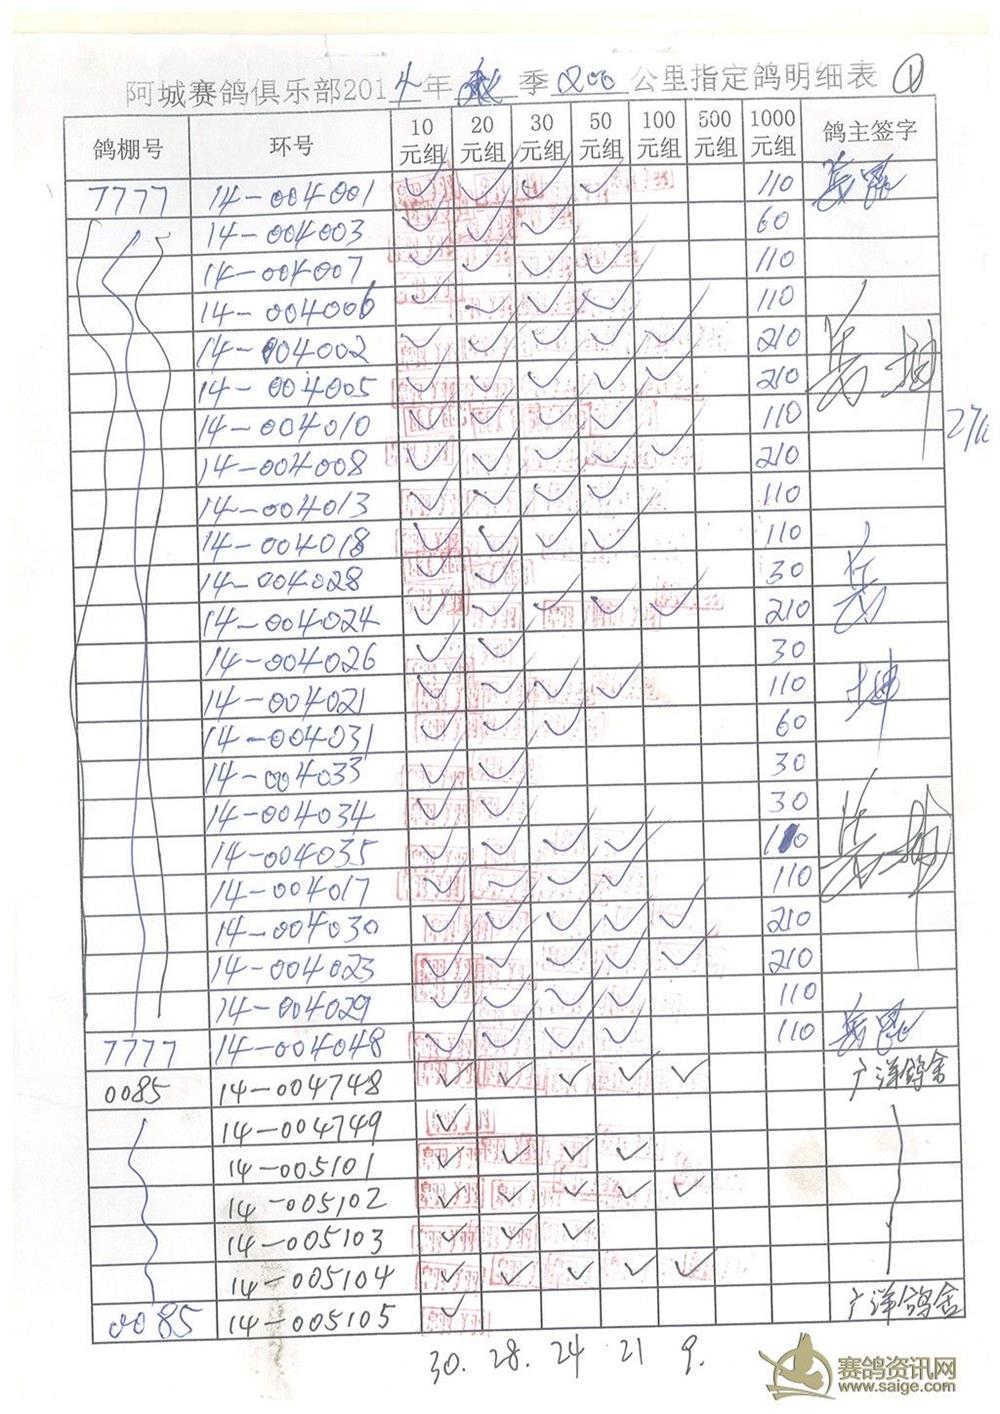 阿城赛鸽俱乐部2014年秋季 公里指定鸽明细表 ①
鸽棚号 环号 10元组 20元组 30元组 50元组 100元组 500元组 1000元组 鸽主签字
7777 14-004001 ✓ ✓ ✓ ✓ 110
14-004003 ✓ ✓ ✓ 60
14-004007 ✓ ✓ ✓ ✓ 110
14-004006 ✓ ✓ ✓ ✓ 110
14-004002 ✓ ✓ ✓ ✓ ✓ 210
14-004005 ✓ ✓ ✓ ✓ ✓ 210
14-004010 ✓ ✓ ✓ ✓ 110
14-004008 ✓ ✓ ✓ ✓ ✓ 210
14-004013 ✓ ✓ ✓ ✓ 110
14-004018 ✓ ✓ ✓ ✓ 110
14-004028 ✓ ✓ 30
14-004024 ✓ ✓ ✓ ✓ ✓ 210
14-004026 ✓ ✓ 30
14-004021 ✓ ✓ ✓ ✓ 110
14-004031 ✓ ✓ ✓ 60
14-004033 ✓ ✓ 30
14-004034 ✓ ✓ 30
14-004035 ✓ ✓ ✓ ✓ 110
14-004017 ✓ ✓ ✓ ✓ 110
14-004030 ✓ ✓ ✓ ✓ ✓ 210
14-004023 ✓ ✓ ✓ ✓ ✓ 210
14-004029 ✓ ✓ ✓ ✓ 110
7777 14-004048 ✓ ✓ ✓ ✓ 110
0085 14-004748 ✓ ✓ ✓ ✓ ✓ 广洋鸽舍
14-004749 ✓
14-005101 ✓ ✓ ✓ ✓
14-005102 ✓ ✓ ✓ ✓ ✓
14-005103 ✓ ✓ ✓
14-005104 ✓ ✓ ✓ ✓ ✓
0085 14-005105 ✓ 广洋鸽舍
30. 28. 24 21 9.
赛鸽资讯网
www.saige.com